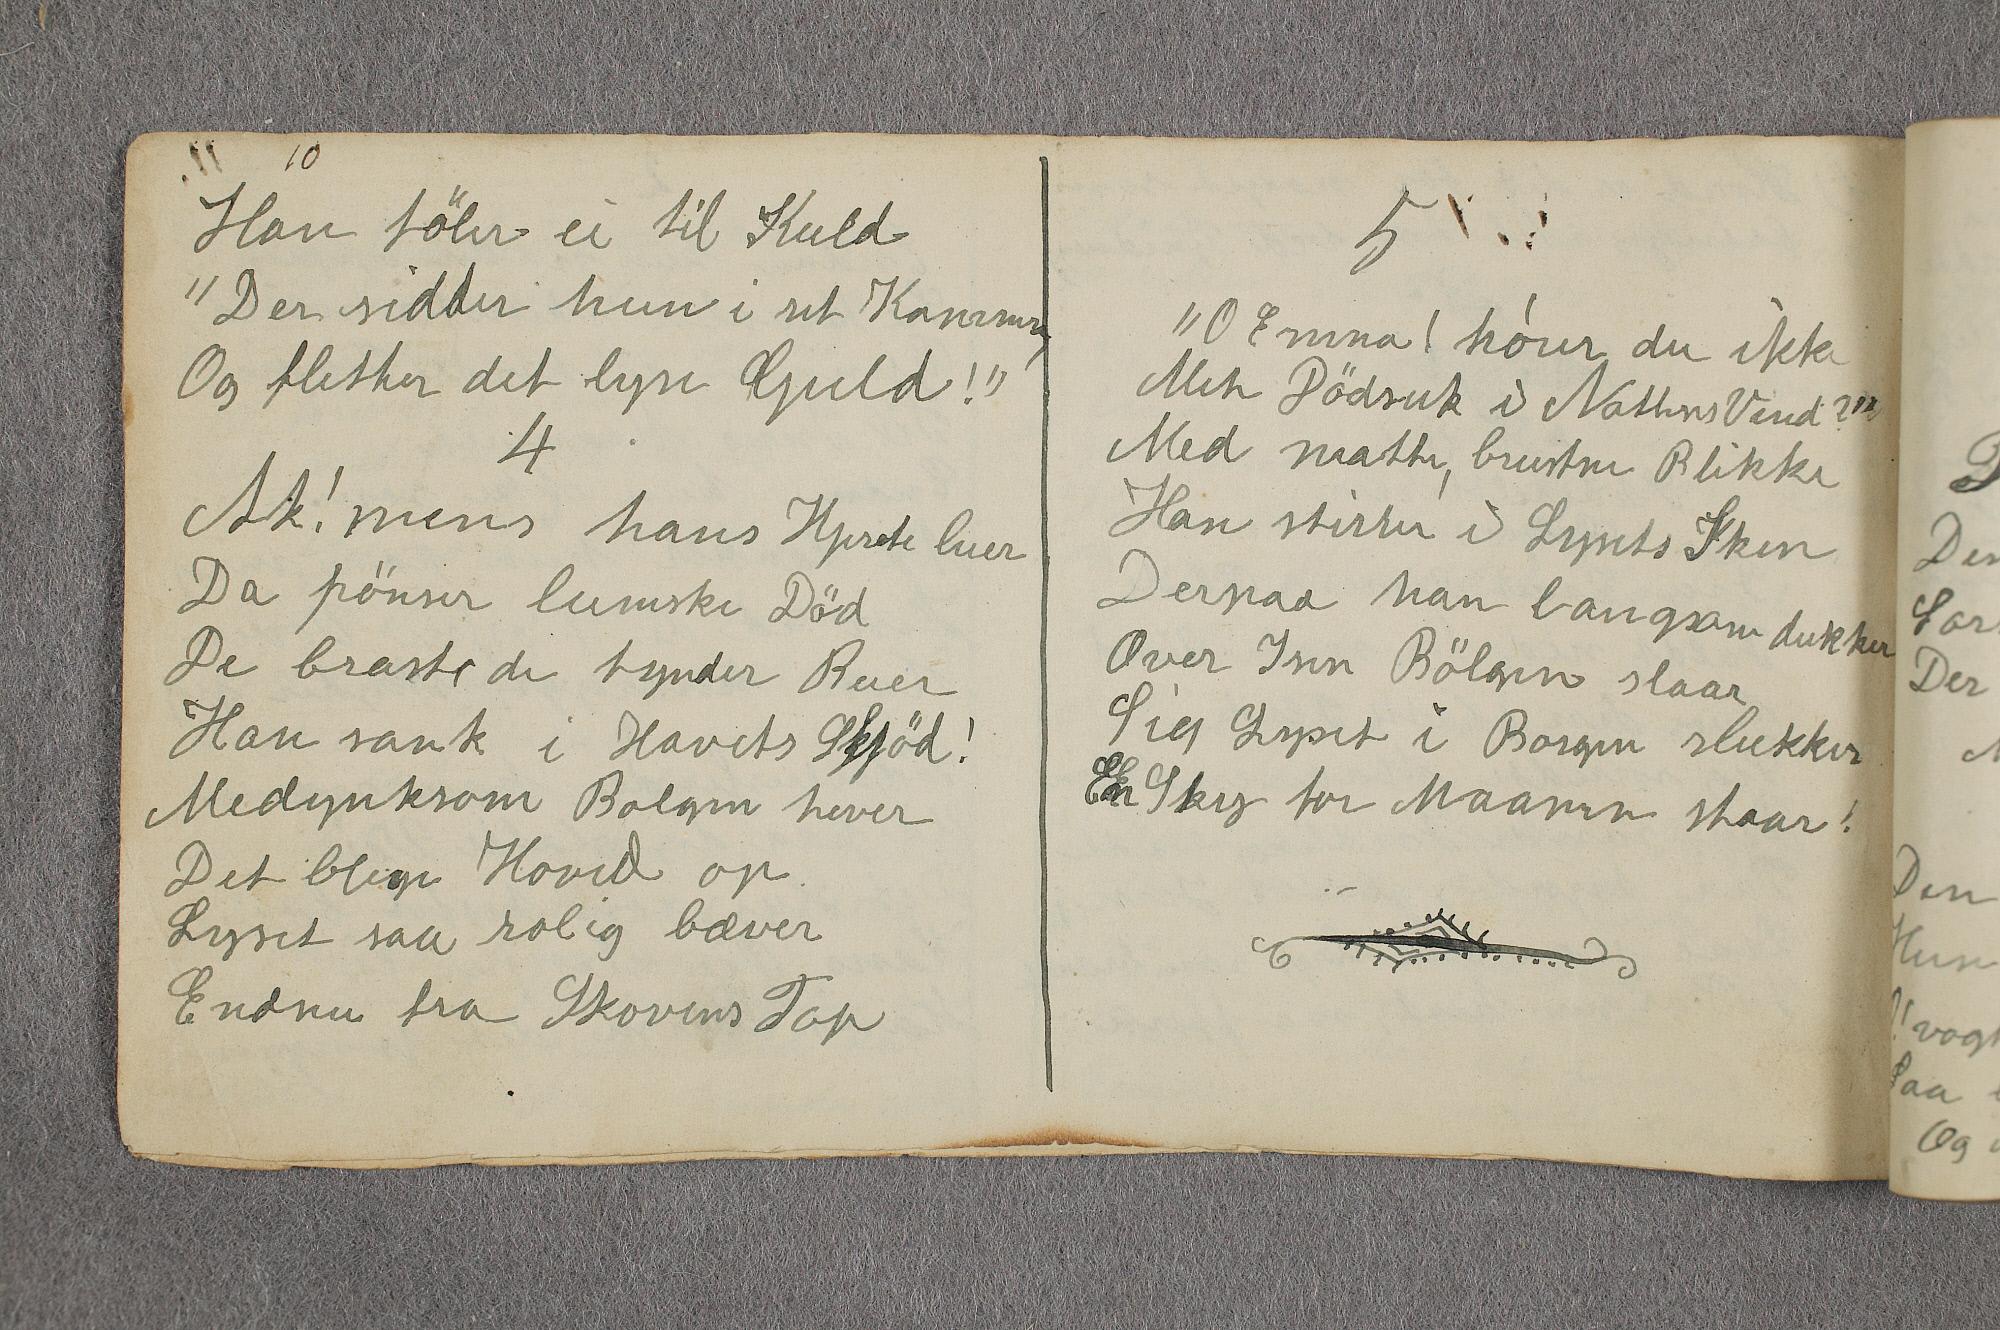 10
Han föler ei til Kuld
"Der sidder hun i sit Kammer
Og fletter det lyse Guld!"
4
Ak! mens hans Hjerte luer
Da pönser lumske Död
De braste de tynder Buer
Han sank i Havets Skjöd!
Medynksom Bolgen hever
Det blege Hoved op
Lyset saa rolig bæver
Endnu fra Skovens Top
5
"O Emma! hörer du ikke
Mit Dödsuk i Nattens Vind?"
Med matte, brustne Blikke
Han stirrer i Lysets Sken
Derpaa han langsom dukker
Over Isen Bölgen slaar
Sig Lyset i Borgen slukker
En Sky for Maanen staar!
Den
Der
Den
Hun
Saa
Og